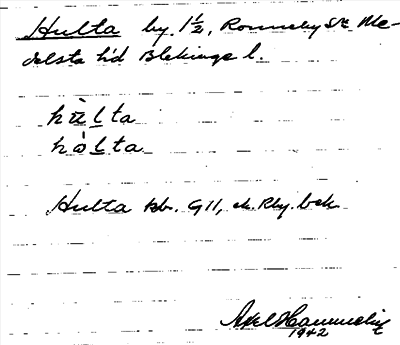 Hulta by. 1½, Ronneby sn Me-
delsta hd Blekinge l.
hùlta
hòlta
Hulta kb. G11, ek. Rby. bek
Axel
1942